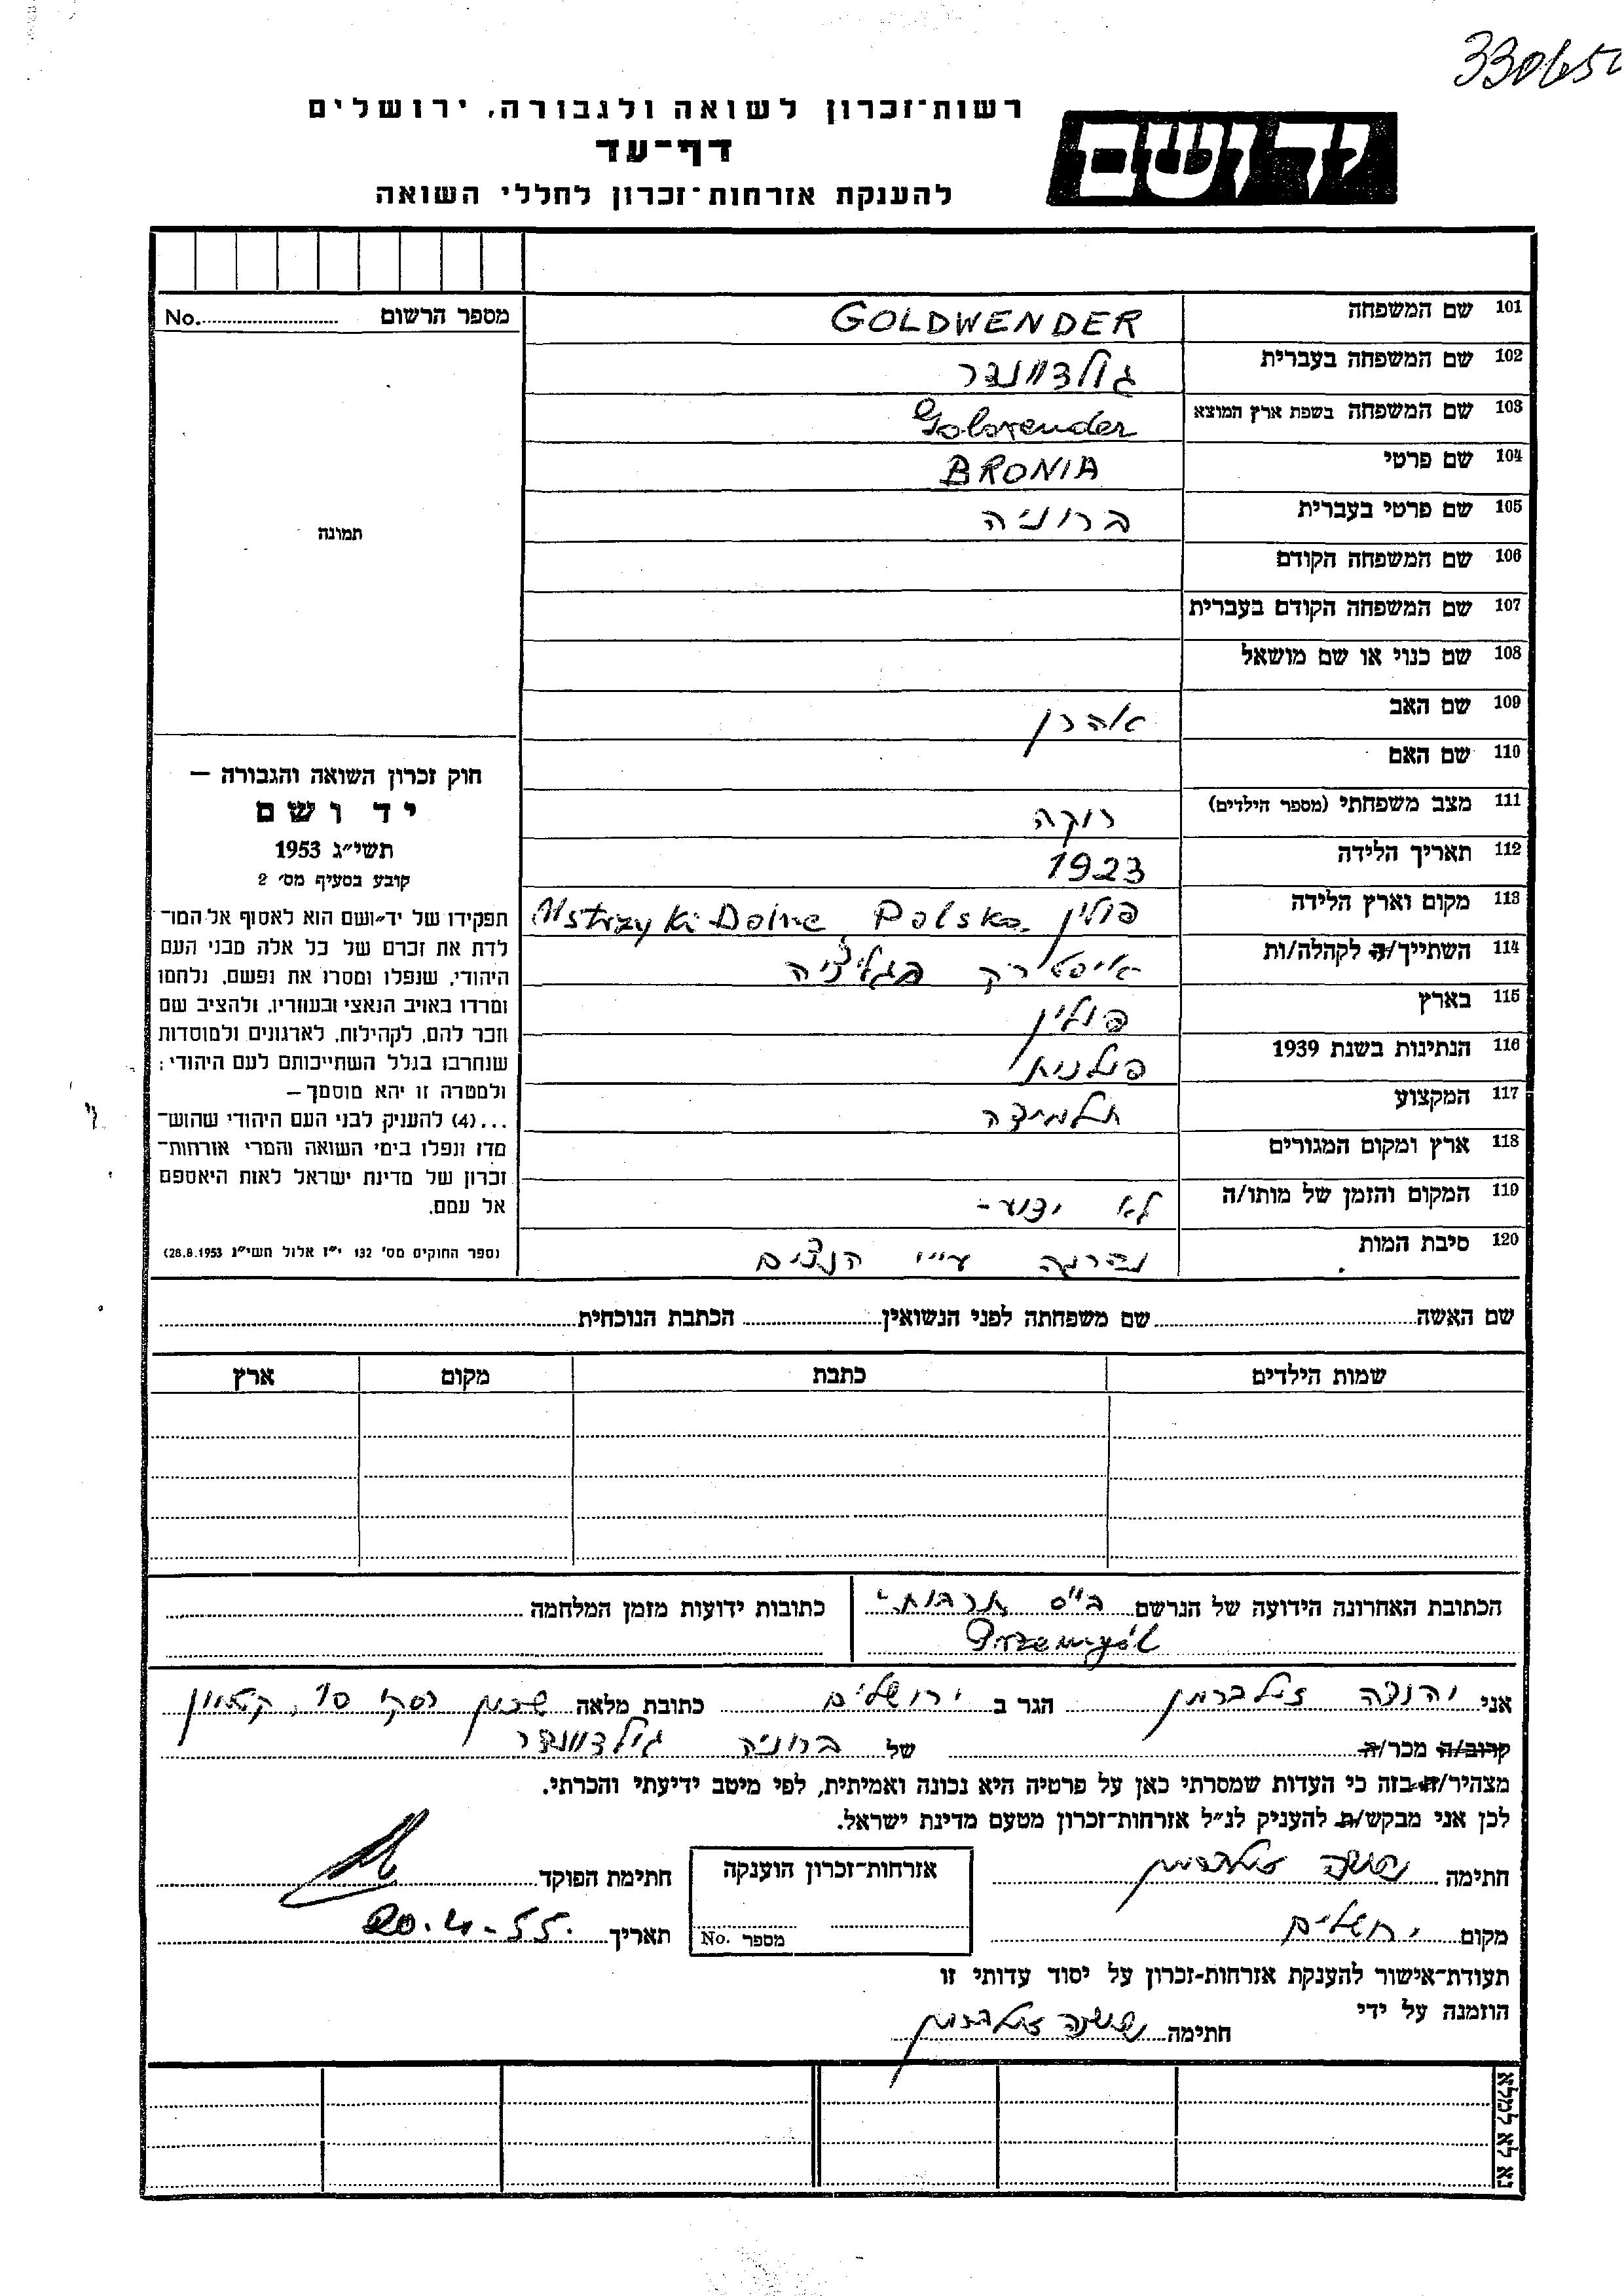 330650
רשות־זכרון לשואה ולגבורה, ירושלים
דף־עד
להענקת אזרחות־זכרון לחללי השואה
יד ושם
מספר הרשום No.
101 שם המשפחה GOLDWENDER
102 שם המשפחה בעברית גולדוונדר
103 שם המשפחה בשפת ארץ המוצא
104 שם פרטי BRONIA
105 שם פרטי בעברית ברוניה
106 שם המשפחה הקודם
107 שם המשפחה הקודם בעברית
108 שם כנוי או שם מושאל
109 שם האב אהרן
110 שם האם
111 מצב משפחתי (מספר הילדים) רוקה
112 תאריך הלידה 1923
113 מקום וארץ הלידה פולין Ustrzyki Dolne, Polska
114 השתייך/ה לקהלה/ות איסטריק בגליציה
115 בארץ פולין
116 הנתינות בשנת 1939 פולנית
117 המקצוע תלמידה
118 ארץ ומקום המגורים
119 המקום והזמן של מותו/ה לא ידוע-
120 סיבת המות נהרגה ע״י הנצים
תמונה
חוק זכרון השואה והגבורה —
יד ושם
תשי״ג 1953
קובע בסעיף מס׳ 2
תפקידו של יד־ושם הוא לאסוף אל המו־
לדת את זכרם של כל אלה מבני העם
היהודי, שנפלו ומסרו את נפשם, נלחמו
ומרדו באויב הנאצי ובעוזריו, ולהציב שם
וזכר להם, לקהילות, לארגונים ולמוסדות
שנחרבו בגלל השתייכותם לעם היהודי;
ולמטרה זו יהא מוסמך—
...(4) להעניק לבני העם היהודי שהוש־
מדו ונפלו בימי השואה והמרי אזרחות־
זכרון של מדינת ישראל לאות היאספם
אל עמם.
(ספר החוקים מס׳ 132 י״ז אלול תשי״ג 28.8.1953)
שם האשה שם משפחתה לפני הנשואין הכתבת הנוכחית
שמות הילדים כתבת מקום ארץ
הכתובת האחרונה הידועה של הנרשם בי״ס תרבות כתובות ידועות מזמן המלחמה
Przemyśl
אני זילברמן הגר ב ירושלים כתובת מלאה שכון 10, קטמון
קרוב/ה מכר/ה של ברוניה גולדוונדר
מצהיר/ה בזה כי העדות שמסרתי כאן על פרטיה היא נכונה ואמיתית, לפי מיטב ידיעתי והכרתי.
לכן אני מבקש/ת להעניק לנ״ל אזרחות־זכרון מטעם מדינת ישראל.
חתימה זילברמן אזרחות־זכרון הוענקה חתימת הפוקד
מקום ירושלים מספר No. תאריך 20.4-55.
תעודת־אישור להענקת אזרחות-זכרון על יסוד עדותי זו
הוזמנה על ידי
חתימה זילברמן
נא לא למלא